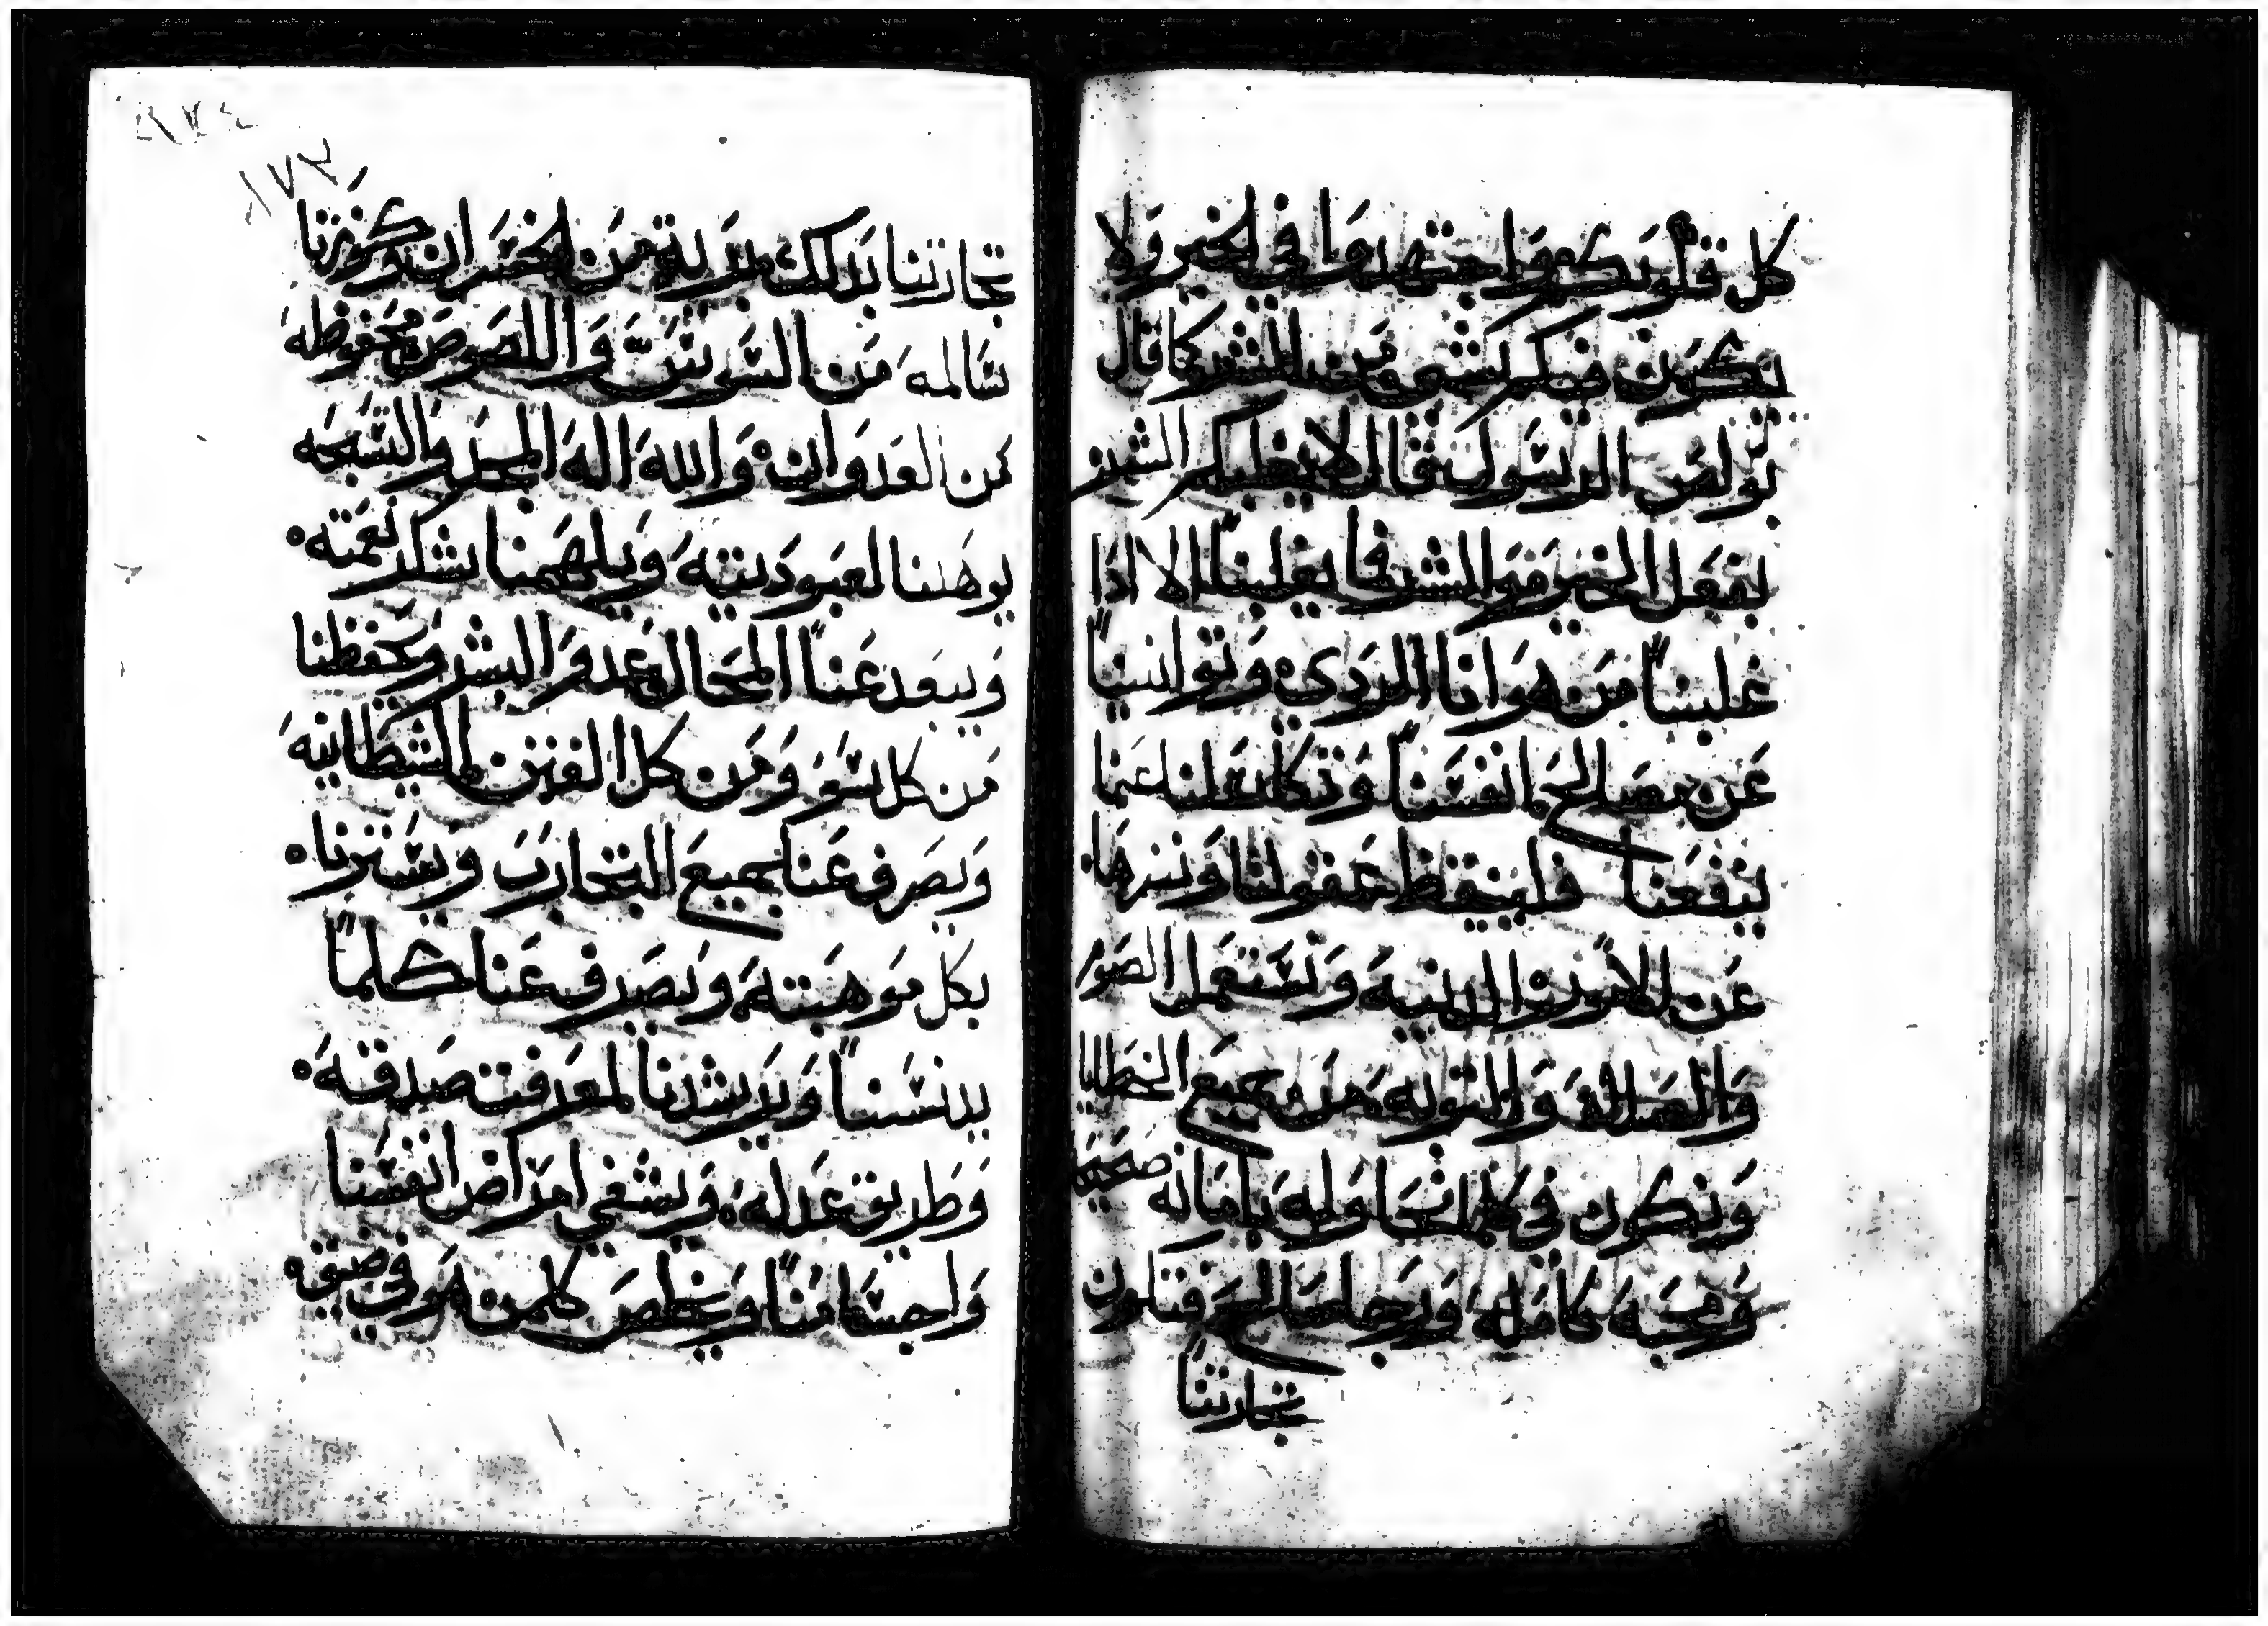 كل قلوبكم واجتهدوا في الخير ولا
يكون فيكم شي من الشر كما قال
بولص الرسول قال لا يغلبكم الشر
بفعل الخير فما الشر فما يغلبنا الا اذا
غلبنا من هوانا الردي وتوانينا
عن مصالح انفسنا وتكاسلنا عما
ينفعنا فلينيقظ عقولنا وننزها
عن الامور الدنيه ونستعمل الصوم
والصلاه والتوبه من جميع الخطايا
ونكون في كلما نحاوله بامانه صحيحه
ومحبه كامله ورجا صالح فتكون
تجارتنا
تجارتنا بذلك بريه من الخسران وكنوزنا
سالمه من السوس واللصوص محفوظه
من العدوان والله اله المجد والسبحه
يوهلنا لعبوديته ويلهمنا شكر نعمته
ويبعد عنا المحال عدو البشر ويحفظنا
من كل سو ومن كل الفتن الشيطانيه
ويصرف عنا جميع التجارب ويسترنا
بكل موهبته ويصرف عنا كلما
يدنسنا ويرشدنا لمعرفت صدقه
وطريق عدله ويشفي امراض انفسنا
واجسامنا ويخلص كلمن هو في ضيقه